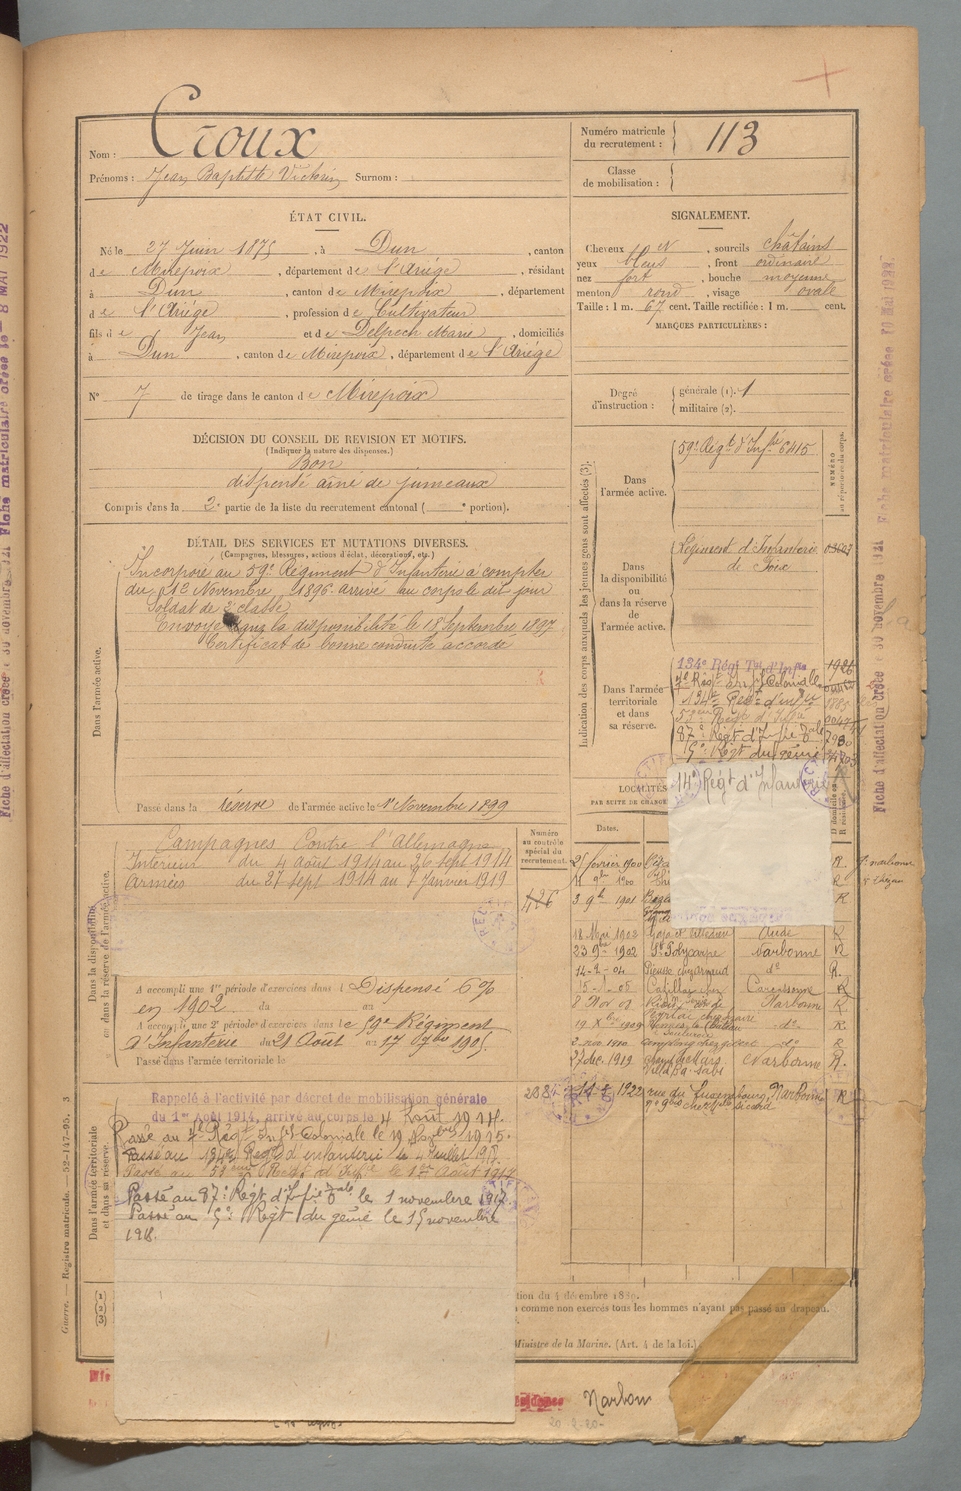 Nom : Croux
Prénoms : Jean Baptiste Victorin Surnom :
Numéro matricule du recrutement : 113
Classe de mobilisation :
ÉTAT CIVIL.
Né le 27 Juin 1875, à Dun, canton
de Mirepoix, département de l'Ariège, résidant
à Dun, canton de Mirepoix, département
de l'Ariège, profession de Cultivateur
fils de Jean et de Delpech Marie, domiciliés
à Dun, canton de Mirepoix, département de l'Ariège
N° 7 de tirage dans le canton de Mirepoix
SIGNALEMENT.
Cheveux , sourcils châtains
yeux bleus, front ordinaire
nez fort, bouche moyenne
menton rond, visage ovale
Taille : 1 m. 67 cent. Taille rectifiée : 1 m. cent.
MARQUES PARTICULIÈRES :
Degré d'instruction : générale (1). 1
militaire (2).
DÉCISION DU CONSEIL DE REVISION ET MOTIFS.
(Indiquer la nature des dispenses.)
Bon
dispensé aîné de jumeaux
Compris dans la 2e partie de la liste du recrutement cantonal ( e portion).
DÉTAIL DES SERVICES ET MUTATIONS DIVERSES.
(Campagnes, blessures, actions d'éclat, décorations, etc.)
Dans l'armée active.
Incorporé au 59e Régiment d'Infanterie à compter
du 13 Novembre 1896. arrivé au corps le dit jour
Soldat de 2e classe
Envoyé dans la disponibilité le 18 Septembre 1897
Certificat de bonne conduite accordé
Passé dans la réserve de l'armée active le 1er Novembre 1899
Indication des corps auxquels les jeunes gens sont affectés (3).
NUMÉRO au répertoire du corps.
Dans l'armée active.
59e Régt d'Infie 6415
Dans la disponibilité ou dans la réserve de l'armée active.
Régiment d'Infanterie
de Foix
Dans l'armée territoriale et dans sa réserve.
134e Régt Tal d'Infie
7e Régt d'Infie Coloniale
134e Régt d'infie
53eme Régt d'Infie
87e Régt d'Infie Tale
5e Régt du génie
14e Régt d'Infanterie
LOCALITÉS
PAR SUITE DE CHANGE
Dates.
D domicile
R résidence
Numéro au contrôle spécial du recrutement.
426
Dans la disponibilité ou dans la réserve de l'armée active.
Campagnes Contre l'Allemagne
Intérieur du 4 août 1914 au 26 sept 1914
Armées du 27 sept 1914 au 7 Janvier 1919
A accompli une 1re période d'exercices dans l Dispensé 6%
en 1902. du au
A accompli une 2e période d'exercices dans le 59e Régiment
d'Infanterie du 21 Août au 17 7bre 1905.
Passé dans l'armée territoriale le
février 1900
9bre 1900 R
3 9bre 1901 R
18 Mai 1902 Aude R
23 9bre 1902 St Polycarpe Narbonne R
14-2-04 do R.
15-1-05 Carcassonne R
8 Nov 07 Narbonne R
19 Xbre 1909 do R
2 nov 1910 do R
27 dec. 1919 Champ de Mars Narbonne R.
14-2 1922 rue du Luxembourg Narbonne R
Dans l'armée territoriale et dans sa réserve.
Rappelé à l'activité par décret de mobilisation générale
du 1er Août 1914, arrivé au corps le 4 Août 1914.
Passé au 7e Régt Infie Coloniale le 19 1915.
Passé au 134e Régt d'infanterie le 4 Juillet 191
Passé au 53eme Régt d'Infie le 1er Août 1917
Passé au 87e Régt d'Infie Tale le 1 novembre 1917
Passé au 5e Régt du génie le 15 novembre
1918.
tion du 4 décembre 18
comme non exercés tous les hommes n'ayant pas passé au drapeau.
Ministre de la Marine. (Art. 4 de la loi.)
Narbon
20-2-20-
Guerre. — Registre matricule. — 52-147-95. 3
Fiche matriculaire créée le 8 MAI 1922
Fiche d'affectation créée le 30 novembre 1921
Fiche d'affectation créée le 30 novembre 1921 Fiche matriculaire créée